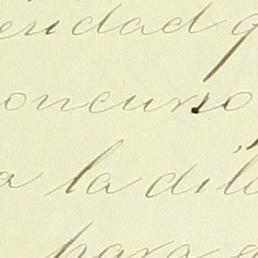 eridad q
oncurso
a la dil
para